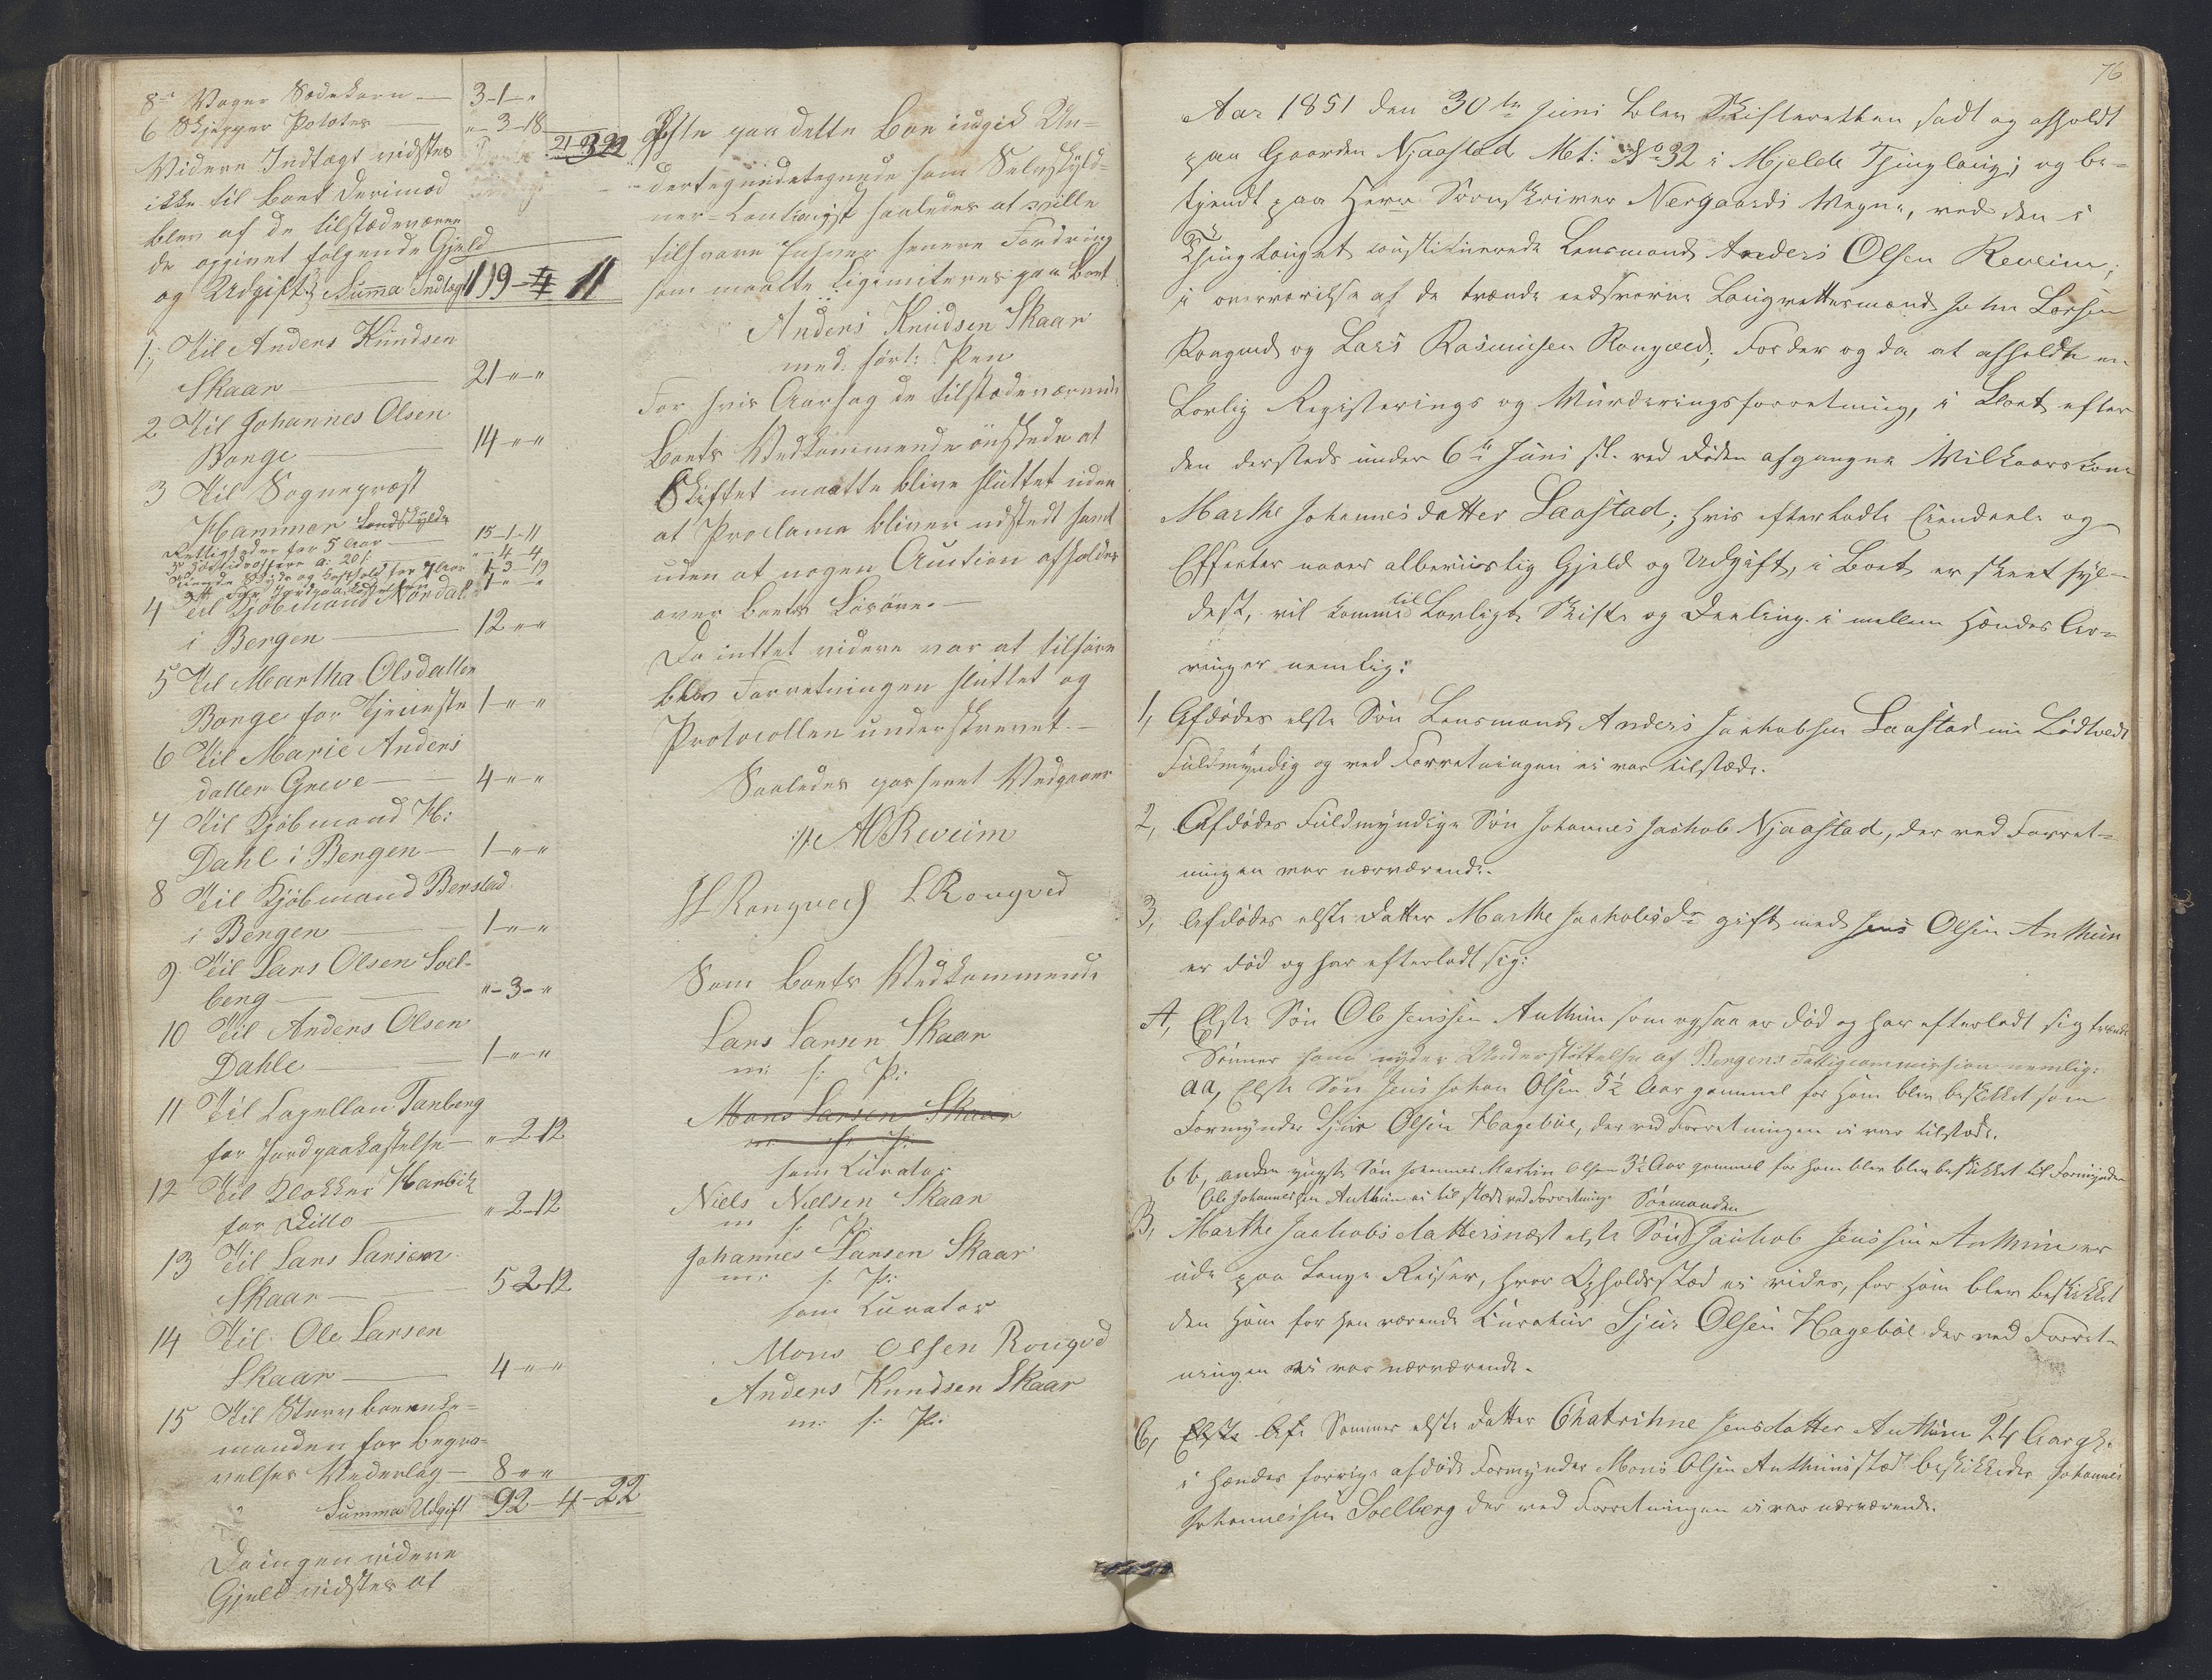 8 Voger Sædekorn — 3-1-"
6 Skjepper Potates — "-3-18
Videre Indtægt vidstes
ikke til Boet derimod
blev af de tilstædeværen
de opgivet følgende Gjeld
og Udgift; Summa Indtægt 119-"-11
1; Til Anders Knudsen
Skaar — 21-"-"
2 Til Johannes Olsen
Bonge — 14-"-"
3 Til Sognepræst
Hammer Landskyld
Rettigheder for 5 Aar — 15-1-11
Høitidsoffere a: 20 s — "-4-4
Tiende Skyds og Hosthold for 7 Aar 1-3-19
for Jordpaakastelsen 1-"-"
4 Til Kjøbmand Nordal
i Bergen — 12-"-"
5 Til Martha Olsdatter
Bonge for Tjeneste 1-"-"
6 Til Marie Anders
datter Greve — 4-"-"
7 Til Kjøbmand H:
Dahl i Bergen — 1-"-"
8 Til Kjøbmand Berstad
i Bergen — 1-"-"
9 Til Lars Olsen Soel-
berg — "-3-"
10 Til Anders Olsen
Dahle — 1-"-"
11 Til Capellan Tanberg
for Jordpaakastelse — "-2-12
12 Til Klokker Harbitz
for Ditto — "-2-12
13 Til Lars Larsen
Skaar — 5-2-12
14 Til Ole Larsen
Skaar — 4-"-"
15 Til Stervboenke-
manden for Begra-
velses Vederlag — 8-"-"
Summa Udgift 92-4-22
Da ingen videre
Gjeld vidstes at
hefte paa dette Boe indgik Un-
dertegnede som Selvskyld-
ner-Cautionist saaledes at ville
tilsvare Enhver senere Fordring
som maatte legimiteres paa Boet
Anders Knudsen Skaar
med ført: Pen
For hvis Aarsag de tilstedeværende
Boets Vedkommende ønskede at
Skiftet maatte blive sluttet uden
at Proclama bliver udstedt samt
uden at nogen Auction afholdes
over Boets Løsøre. —
Da inttet videre var at tilføre
blev Forretningen sluttet og
Protocollen underskrevet. —
Saaledes passeret Vedgaaer
AO Reveim
JL Rongved L Rongved
Som Boets Vedkommende
Lars Larsen Skaar
m: f: P:
Mons Larsen Skaar
m: f: P:
som Curator
Niels Nielsen Skaar
m f: P:
Johannes Larsen Skaar
m: f: P:
som Curator
Mons Olsen Rongvd
Anders Knudsen Skaar
m: f: P:
76
Aar 1851 den 30te Juni blev Skifteretten sadt og afholdt
paa Gaarden Njaastad Mat: No 32 i Mjelde Thinglaug; og be-
tjendt paa Herr Sorenskriver Nergaards Vegne, ved den i
Thinglauget constituerede Lensmand Anders Olsen Reveim;
i overværelse af de tvende eedsvorne Laugrettesmænd John Larsen
Rongved og Lars Rasmusen Rongved; Forder og da at afholdte en
Lovlig Registerings og Vurderingsforretning, i Boet efter
den dersteds under 6te Juni sl. ved Døden afgangne Vilkaarskone
Marthe Johannesdatter Laastad; hvis efterladte Eiendeele og
Effecter naar alberiistig Gjeld og Udgift, i Boet er skeet fyl-
dest, vil komme til Lovligt Skifte og Deeling. i mellem Hændes Ar-
vinger nemlig:
1, Afdødes elste Søn Lensmand Anders Jachobsen Laastad nu Lødtvedt
Fuldmyndig og ved Forretningen ei var tilstæde.
2, Afdødes Fuldmyndige Søn Johannes Jachob Njaastad, der ved Forret-
ningen var nærværende.
3, Afdødes elste Datter Marthe Jachobsdr gift med Jens Olsen Anthun
er Død og har efterladt sig:
A, Elste Søn Ole Jenssen Anthun som ogsaa er Død og har efterladt sig tvende
Sønner som nyder Understøttelse af Bergens Fattigcommission nemlig:
aa, Elste Søn Jens Johan Olsen 5½ Aar gammel for Ham blev beskikket som
Formynder Sjur Olsen Hagebøe, der ved Forretningen ei var tilstæde.
bb, anden yngste Søn Johannes Martin Olsen 3½ Aar gammel for ham blev blev beskikket til Formynder
Ole Johannessen Anthun ei til stæde ved Forretning. Sømanden
B, Marthe Jachobsdatters næst elste Søn Jachob Jenssen Anthun er
ude paa Lange Reiser, hvor Opholdsstæd ei vides, for Ham blev beskikket
den Ham for hen værende Curatur Sjur Olsen Hagebøe der ved Forret-
ningen ei var nærværende.
C, Elste Afd Sammes elste Datter Chatrihne Jensdatter Anthun 24 Aar gl.
i Hændes forrige afdøde Formynder Mons Olsen Anthuns stæd beskikkedes Johannes
Johannessen Soelberg der ved Forretningen ei var nærværende.